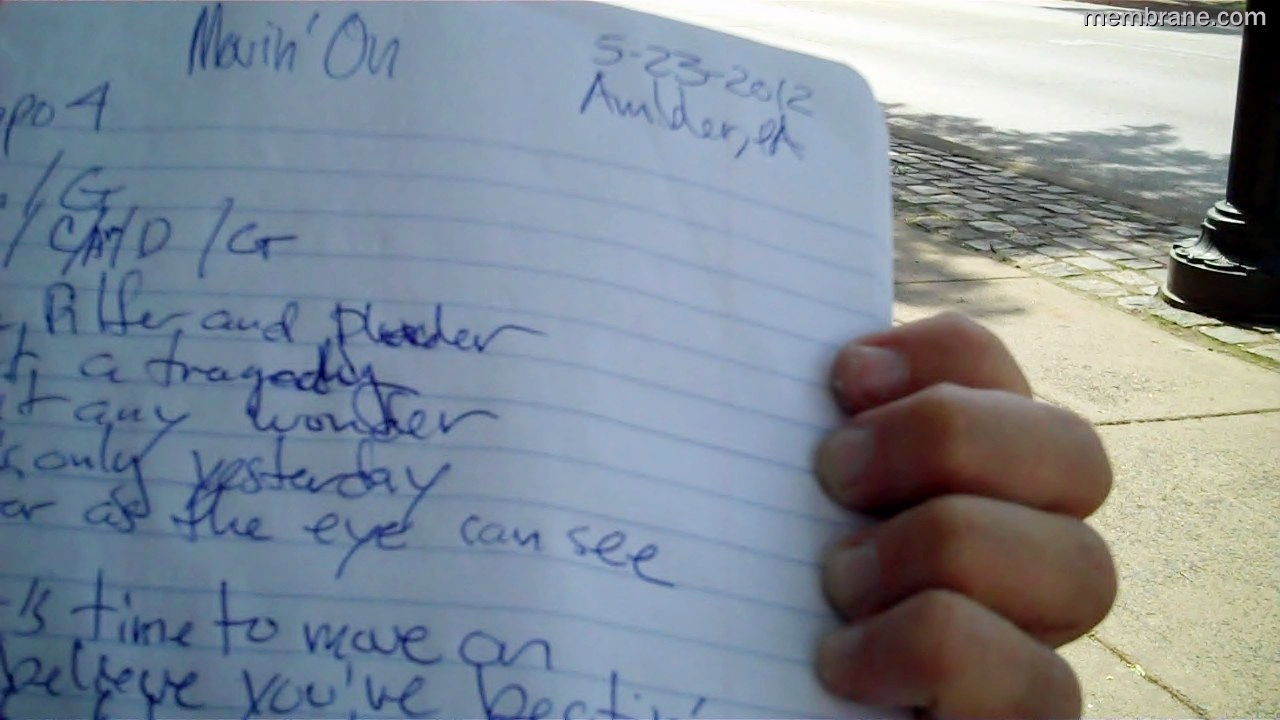 membrane.com
Movin' On
5-23-2012
Ambler, PA
apo 4
/ G
/ C/Am/D / G
, Pilfer, and plunder
t, a tragedy
it any wonder
s only yesterday
ar as the eye can see
t's time to move on
believe you've beatin'